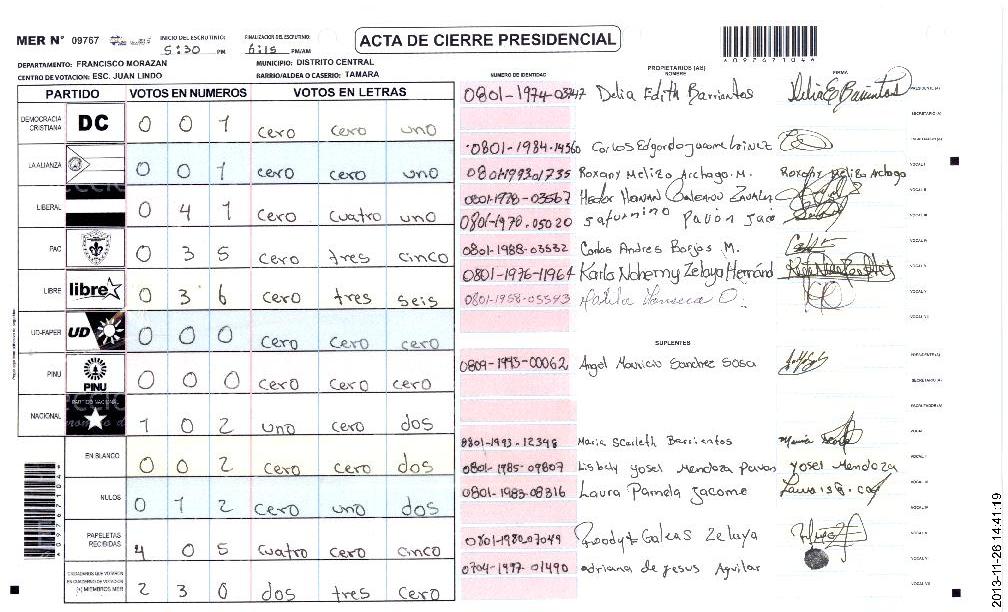 MER N° 09767
INICIO DEL ESCRUTINIO: 5:30 PM
FINALIZACION DEL ESCRUTINIO: 6:15 PM/AM
ACTA DE CIERRE PRESIDENCIAL
DEPARTAMENTO: FRANCISCO MORAZAN
MUNICIPIO: DISTRITO CENTRAL
CENTRO DE VOTACION: ESC. JUAN LINDO
BARRIO/ALDEA O CASERIO: TAMARA
PARTIDO VOTOS EN NUMEROS VOTOS EN LETRAS
DEMOCRACIA CRISTIANA DC 0 0 1 cero cero uno
LA ALIANZA 0 0 1 cero cero uno
LIBERAL 0 4 1 cero cuatro uno
PAC 0 3 5 cero tres cinco
LIBRE libre 0 3 6 cero tres seis
UD-FAPER UD 0 0 0 cero cero cero
PINU PINU 0 0 0 cero cero cero
NACIONAL 1 0 2 uno cero dos
EN BLANCO 0 0 2 cero cero dos
NULOS 0 1 2 cero uno dos
PAPELETAS RECIBIDAS 4 0 5 cuatro cero cinco
CIUDADANOS QUE VOTARON EN CUADERNO DE VOTACION (+) MIEMBROS MER 2 3 0 dos tres cero
NUMERO DE IDENTIDAD PROPIETARIOS (AS) NOMBRE FIRMA
0801-1974-03747 Delia Edith Barrientos PRESIDENTE (A)
SECRETARIO (A)
0801-1984-14560 Carlos Edgardo Jacome
Roxany Meliza Archaga M. Roxany Meliza Archaga VOCAL I
0801-1978-03567 Hector Hernan
0801-1970-05020 Saturnino Pavon
0801-1988-03532 Carlos Andres Borjas M.
0801-1976-11964 Karla Noherny Zelaya Hernánd
0801-1958-05543 Fonseca O.
SUPLENTES
0809-1995-00062 Angel Mauricio Sanchez Sosa
0801-1993-12348 Maria Scarleth Barrientos
0801-1985-09807 Lisbely Yosel Mendoza Pavon Yosel Mendoza
0801-1983-08316 Laura Pamela Jacome
0801-1980-07049 Galeas Zelaya
0704-1997-01490 adriana de jesus Aguilar
2013-11-26 14:41:19